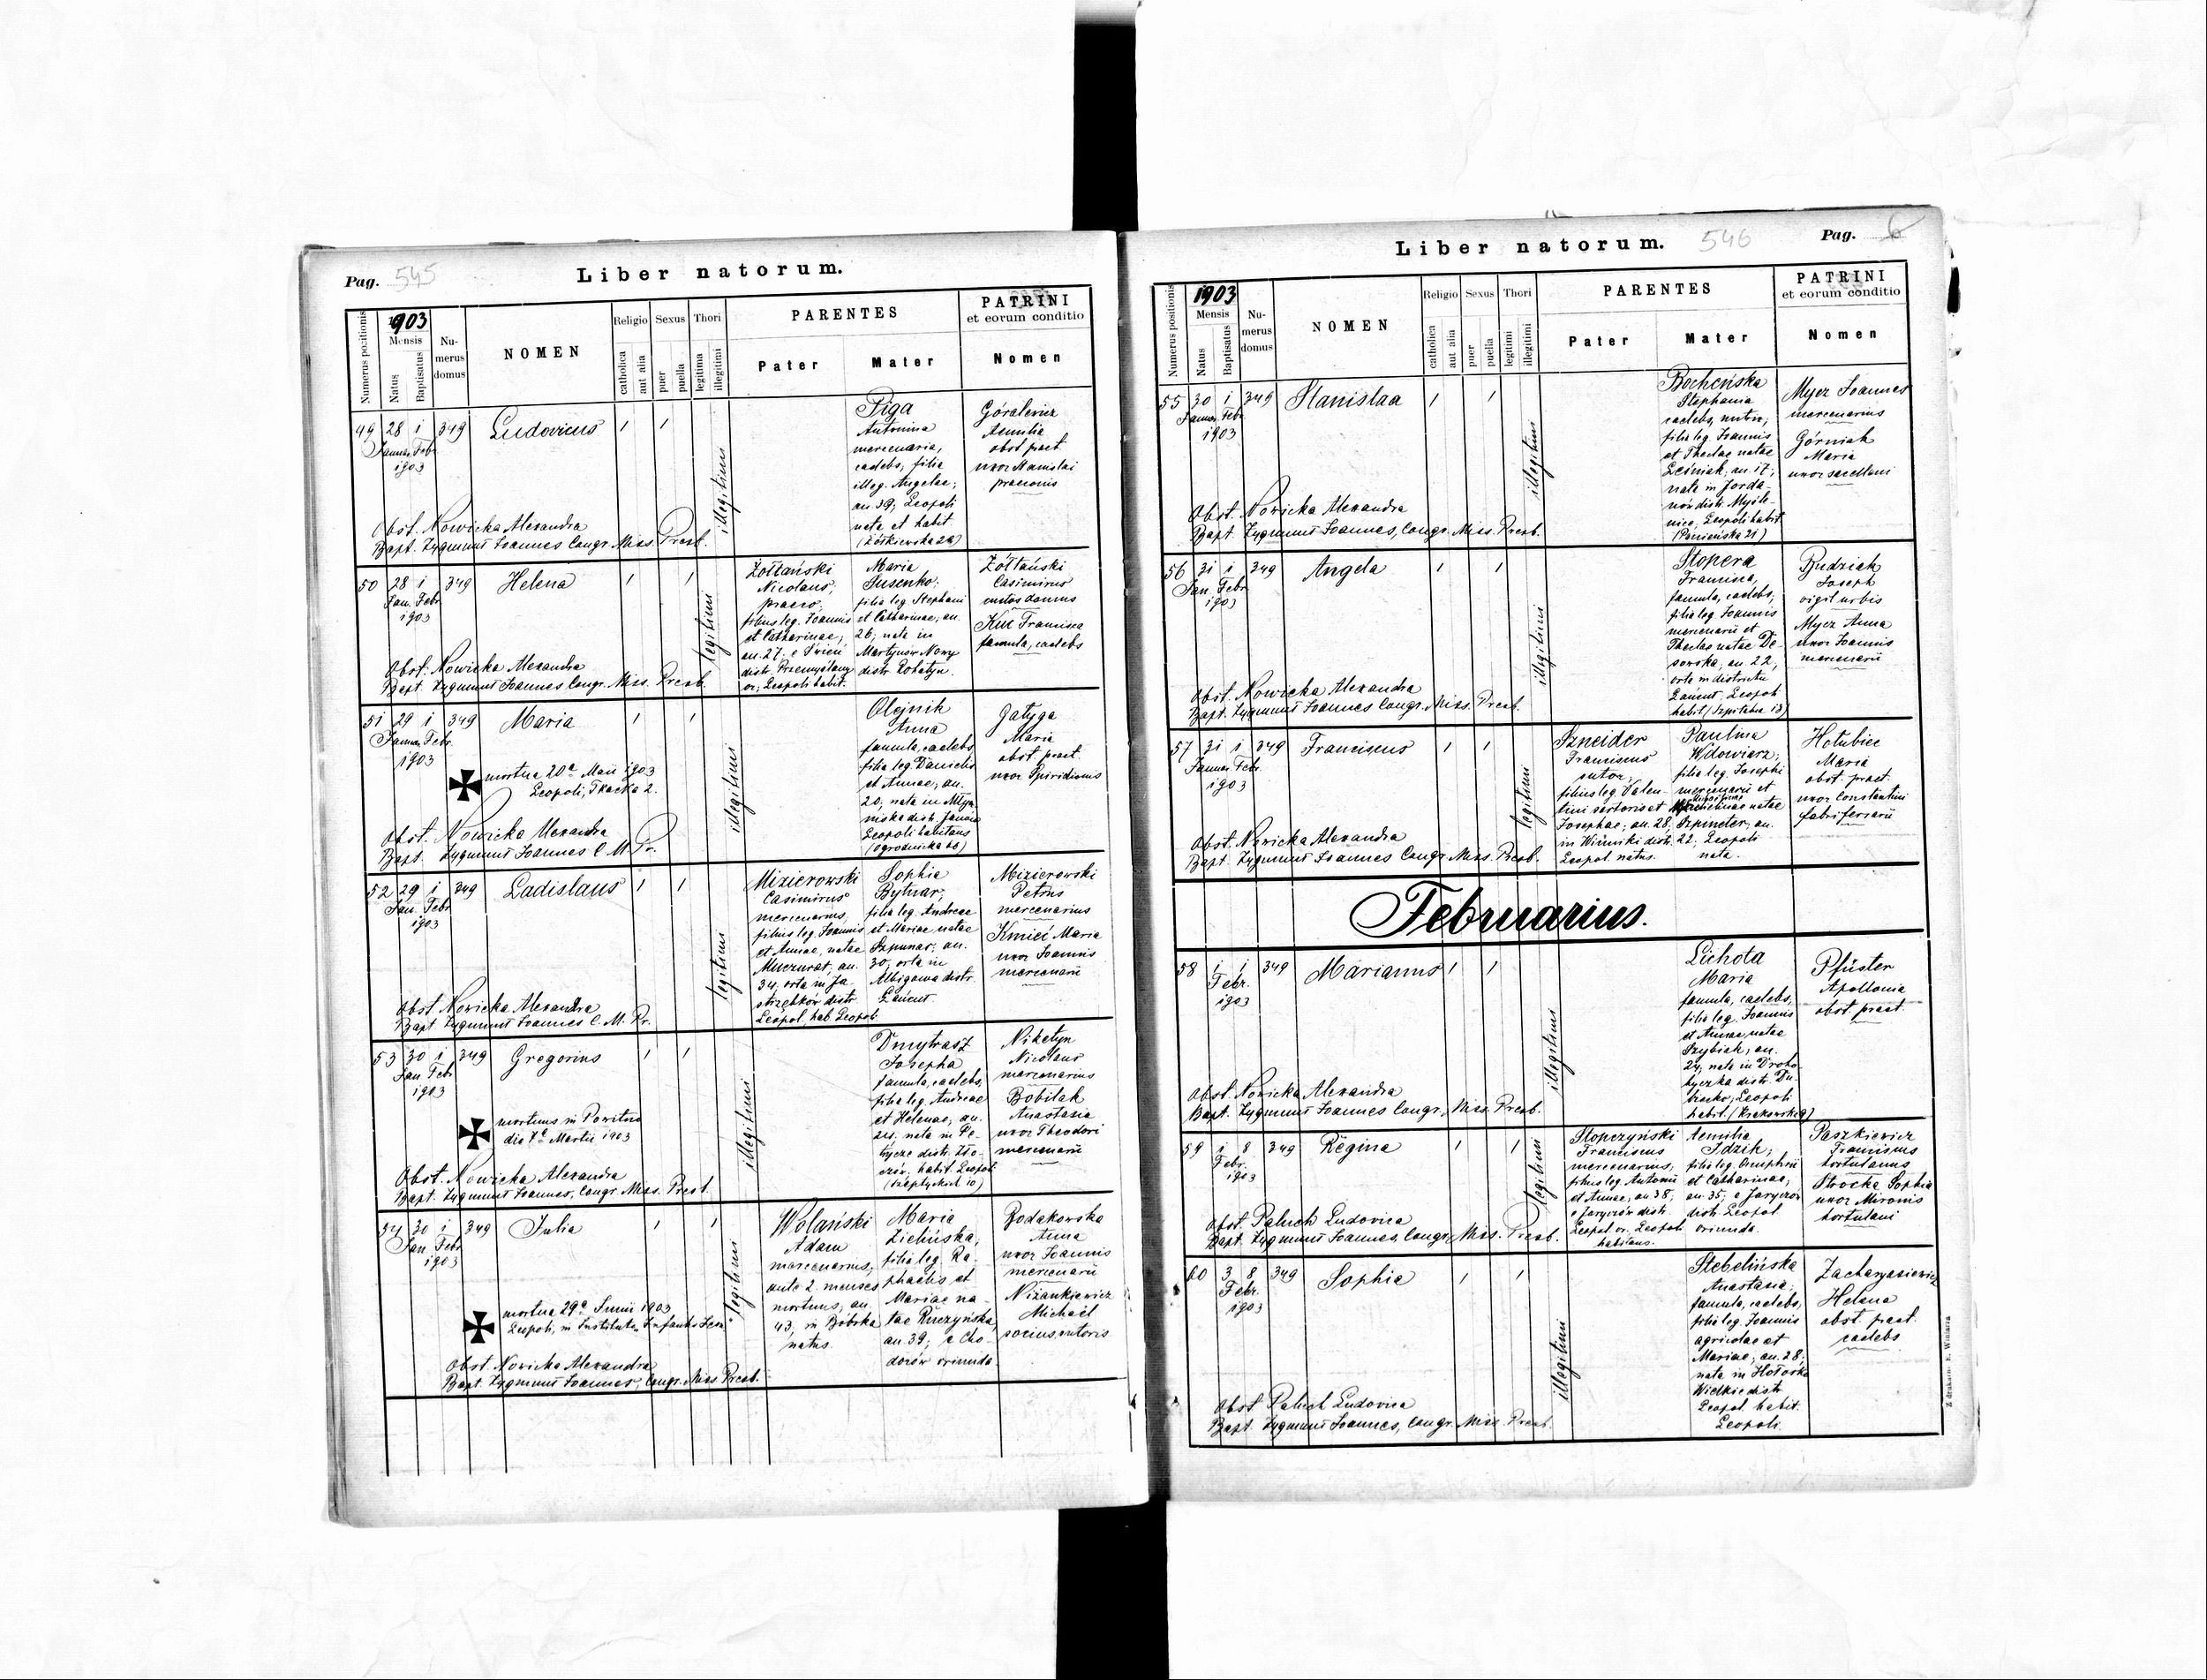 Pag. 545
Liber natorum.
Numerus positionis
1903
Mensis
Natus
Baptisatus
Numerus domus
NOMEN
Religio
catholica
aut alia
Sexus
puer
puella
Thori
legitima
illegitimi
PARENTES
Pater
Mater
PATRINI
et eorum conditio
Nomen
49 28 1 349 Ludovicus 1 1
Januar. Febr.
1903
illegitimi
Piga
Antonina
mercenaria,
caelebs, filia
illeg. Angelae;
an. 39; Leopoli
nata et habit.
(Żółkiewska 29)
Góralewicz
Aemilia
obst. praet.
uxor Stanislai
praeconis
Obst. Nowicka Alexandra
Bapt. Zygmunt Joannes Congr. Miss. Presb.
50 28 1 349 Helena 1 1
Jan. Febr.
1903
legitimi
Żółtański
Nicolaus,
praeco,
filius leg. Joannis
et Catharinae;
an. 27. e
distr. Przemyślany
or; Leopoli habit.
Maria
Jusenko;
filia leg. Stephani
et Catharinae, an.
26; nata in
Martynów Nowy
distr. Rohatyn.
Żółtański
Casimirus
custos domus
Francisca
famula, caelebs
Obst. Nowicka Alexandra
Bapt. Zygmunt Joannes Congr. Miss. Presb.
51 29 1 349 Maria 1 1
Januar. Febr.
1903
mortua 20a Maii 1903
Leopoli, Tkacka 2.
illegitimi
Olejnik
Anna
famula, caelebs,
filia leg. Danielis
et Annae, an.
20; nata in Młyniska
distr. Janów
Leopoli habitans
(Ogrodnicka 66)
Gatyga
Maria
obst. praet.
uxor Spiridionis
Obst. Nowicka Alexandra
Bapt. Zygmunt Joannes C. M. Pr.
52 29 1 349 Ladislaus 1 1
Jan. Febr.
1903
legitimi
Mizierowski
Casimirus
mercenarius,
filius leg. Joannis
et Annae, natae
Muczurat; an.
34. orta in Jastrzębków
distr.
Leopol. hab. Leopoli.
Sophia
Bytnar;
filia leg. Andreae
et Mariae natae
Szpunar; an.
30; orta in
Albigowa distr.
Łańcut
Mizierowski
Petrus
mercenarius
Kmieć Maria
uxor Joannis
mercenarii
Obst. Nowicka Alexandra
Bapt. Zygmunt Joannes C. M. Pr.
53 30 1 349 Gregorius 1 1
Jan. Febr.
1903
mortuus in
die 7a Martii 1903
illegitimi
Dmytrasz
Josepha
famula, caelebs,
filia leg. Andreae
et Helenae, an.
24. nata in
distr. Złoczów,
habit. Leopoli
(Szeptyckich 10)
Niketyn
Nicolaus
mercenarius
Bobilak
Anastasia
uxor Theodori
mercenarii
Obst. Nowicka Alexandra
Bapt. Zygmunt Joannes, Congr. Miss. Presb.
54 30 1 349 Julia 1 1
Jan. Febr.
1903
mortua 29a Junii 1903
Leopoli, in Instituto Infantis Jesu
legitimi
Wolański
Adam
mercenarius,
ante 2 menses
mortuus, an.
43, in Bóbrka
natus.
Maria
Zielińska,
filia leg. Raphaelis
et
Mariae natae
Ruczyńska,
an. 39; e Chodorów
oriunda.
Rodakowska
Anna
uxor Joannis
mercenarii
Niżankiewicz
Michaël
socius sutoris
Obst. Nowicka Alexandra
Bapt. Zygmunt Joannes, Congr. Miss. Presb.
Liber natorum. 546
Pag. 6
Numerus positionis
1903
Mensis
Natus
Baptisatus
Numerus domus
NOMEN
Religio
catholica
aut alia
Sexus
puer
puella
Thori
legitimi
illegitimi
PARENTES
Pater
Mater
PATRINI
et eorum conditio
Nomen
55 30 1 349 Stanislaa 1 1
Januar. Febr.
1903
illegitimi
Bocheńska
Stephania
caelebs, nutrix,
filia leg. Joannis
et Theclae natae
Leśniak; an. 17;
nata in Jordanów
distr. Myślenice,
Leopoli habit.
(Panieńska 21)
Mycz Joannes
mercenarius
Górniak
Maria
uxor sacellani
Obst. Nowicka Alexandra
Bapt. Zygmunt Joannes, Congr. Miss. Presb.
56 31 1 349 Angela 1 1
Jan. Febr.
1903
illegitimi
Stopera
Francisca,
famula, caelebs;
filia leg. Joannis
mercenarii et
Theclae natae
an. 22,
orta in districtu
Łańcut; Leopoli
habit. (Szpitalna 13)
Budziak
Joseph
vigil urbis
Mycz Anna
uxor Joannis
mercenarii
Obst. Nowicka Alexandra
Bapt. Zygmunt Joannes Congr. Miss. Presb.
57 31 1 349 Franciscus 1 1
Januar. Febr.
1903
legitimi
Szneider
Franciscus
sutor,
filius leg. Valentini
sartoris et
Josephae; an. 28,
in Winniki distr.
Leopol. natus.
Paulina
Wdowiarz;
filia leg. Josephi
mercenarii et
natae
Szpineter; an.
22. Leopoli
nata.
Hołubiec
Maria
obst. praet.
uxor Constantini
fabri ferrarii
Obst. Nowicka Alexandra
Bapt. Zygmunt Joannes Congr. Miss. Presb.
Februarius.
58 1 1 349 Marianus 1 1
Febr.
1903
illegitimi
Lichota
Maria
famula, caelebs,
filia leg. Joannis
et Annae, natae
Szybiak, an.
24, nata in Drohobyczka
distr.
Leopoli
habit.
Pfüster
Apollonia
obst. praet.
Obst. Nowicka Alexandra
Bapt. Zygmunt Joannes Congr. Miss. Presb.
59 1 8 349 Regina 1 1
Febr.
1903
legitimi
Stopczyński
Franciscus
mercenarius,
filius leg. Antonii
et Annae, an. 38;
e Jaryczów distr.
Leopol. or. Leopoli
habitans.
Aemilia
Idzik;
filia leg. Onuphrii
et Catharinae;
an. 35; e Jaryczów
distr. Leopol.
oriunda.
Paszkiewicz
Franciscus
hortulanus
Strocka Sophia
uxor Mironis
hortulani
Obst. Paluch Ludovica
Bapt. Zygmunt Joannes, Congr. Miss. Presb.
60 3 8 349 Sophia 1 1
Febr.
1903
illegitimi
Stebelińska
Anastasia;
famula, caelebs,
filia leg. Joannis
agricolae et
Mariae; an. 28;
nata in Hołosko
Wielkie distr.
Leopol. habit.
Leopoli.
Zacharyasiewicz
Helena
obst. praet.
caelebs
Obst. Paluch Ludovica
Bapt. Zygmunt Joannes, Congr. Miss. Presb.
Z drukarni E. Winiarza